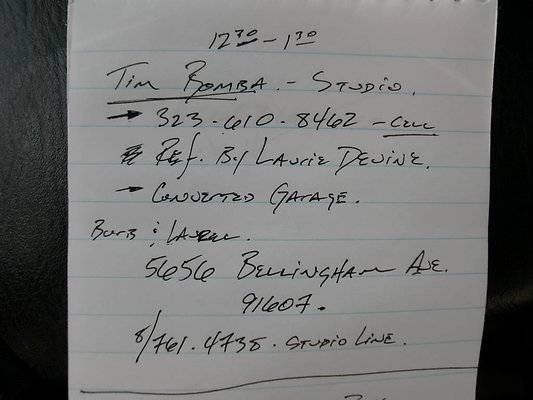 12 30 - 1 30
TIM BOMBA. - STUDIO.
→ 323.610.8462 - CELL
REF. BY LAURIE DEVINE.
→ CONVERTED GARAGE.
BURB : LAUREL.
5656 BELLINGHAM AVE.
91607.
8/761.4738. STUDIO LINE.